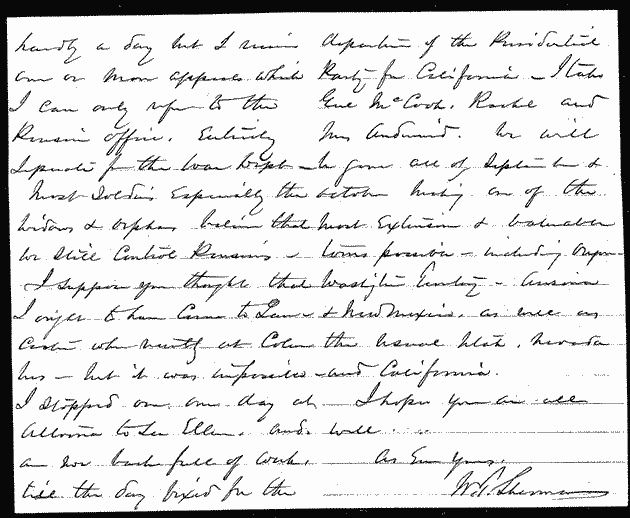 hardly a day but I receive
one or more appeals which
I can only refer to the
Pension office. Entirely
separate from the War Dept -
Most Soldiers Especially the
widows & orphans believe that
we still Control Pensions -
I suppose you thought that
I ought to have Come to
when recently at
his - but it was impossible
I stopped over one day at
Altoona to see Ellen. and
am now back full of work.
till the day fixed for the
departure of the Presidential
Party for California - I take
Genl McCook. Rachel and
Mrs Audenried. We will
be gone all of September &
October making one of the
most Extensive & valuable
tours possible - including Oregon
Washington Territory - Arizona
& New Mexico. as well as
the usual Utah. Nevada
and California.
I hope you are all
well
As Ever Yours,
W. T. Sherman